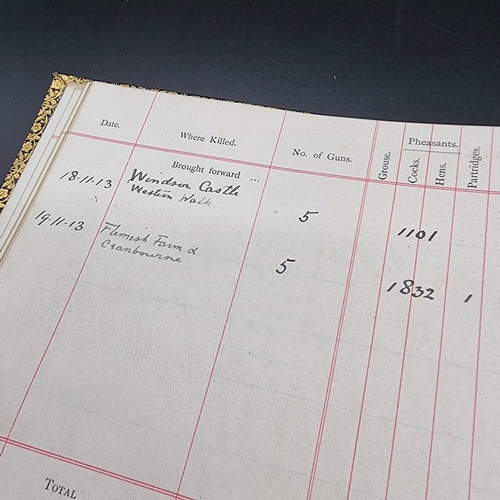 Date. Where Killed. No. of Guns. Grouse. Pheasants. Cocks. Hens. Partridges.
Brought forward ...
18.11.13 Windsor Castle
Western Walk 5 1101
19.11.13 Flemish Farm &
Cranbourne 5 1832 1
TOTAL